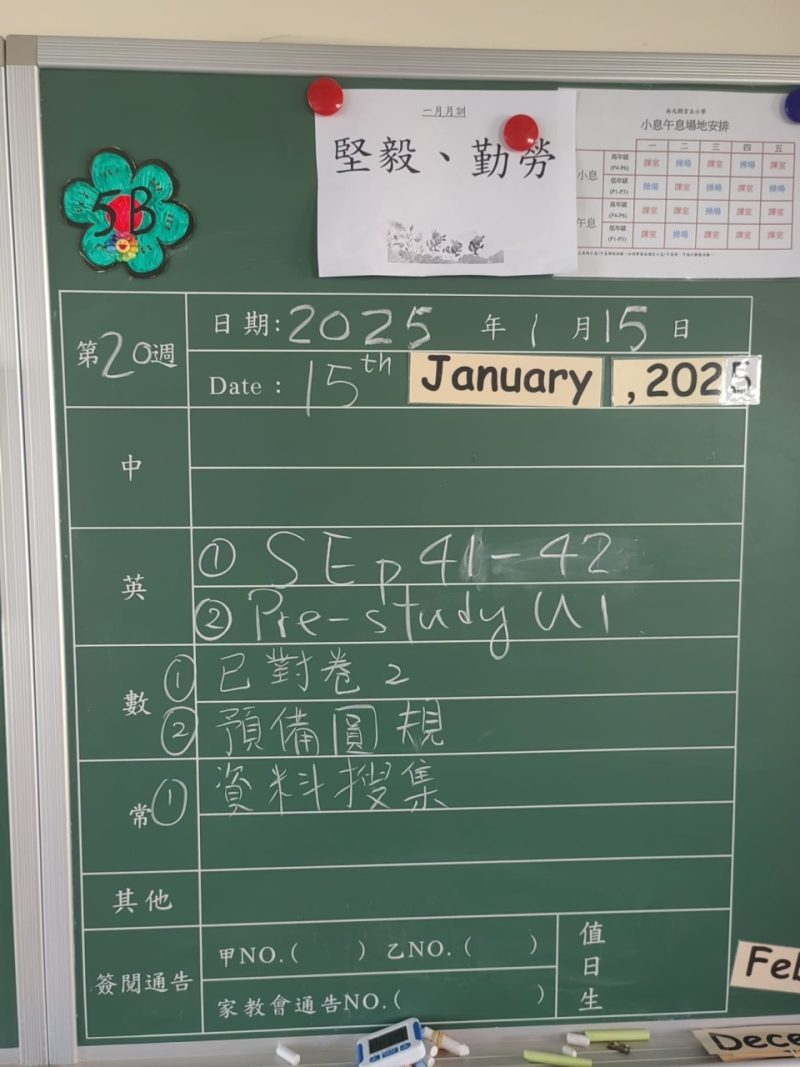 一月月訓
堅毅、勤勞
小息午息場地安排
一 二 三 四 五
小息
高年級 (P4-P6) 課室 操場 課室 操場 課室
低年級 (P1-P3) 操場 課室 操場 課室 操場
午息
高年級 (P4-P6) 課室 課室 操場 課室 課室
低年級 (P1-P3) 課室 操場 課室 課室 課室
5B
第20週
日期:2025 年 1 月 15 日
Date : 15th January , 2025
中
英
① SE p 41-42
② Pre-study U1
數
① 已對卷 2
② 預備圓規
常
① 資料搜集
其他
簽閱通告
甲NO.( ) 乙NO.( )
家教會通告NO.( )
值日生
Feb
Dece